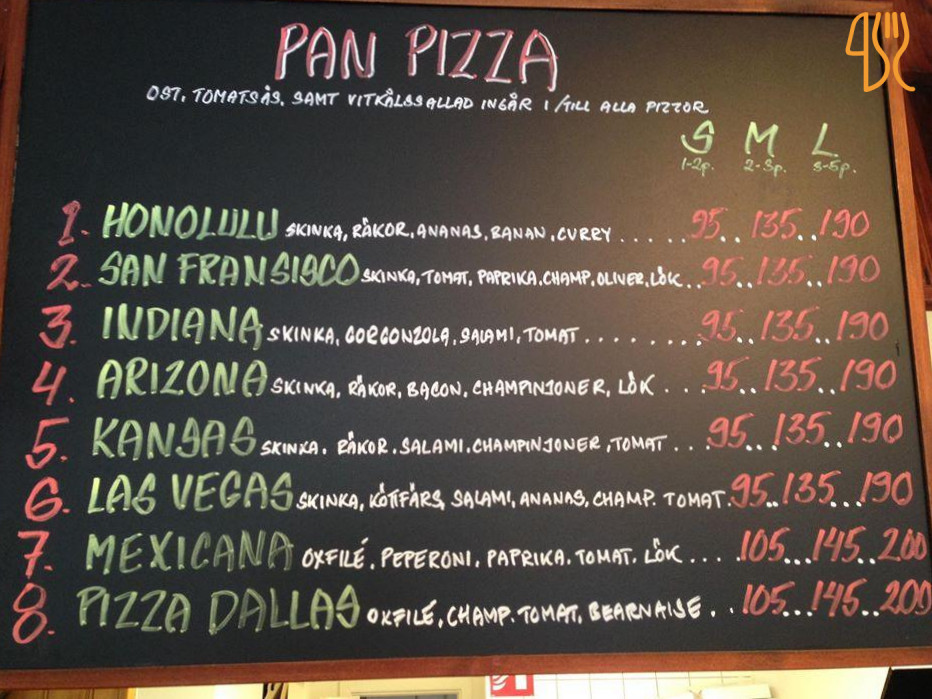 PAN PIZZA
OST, TOMATSÅS, SAMT VITKÅLSSALLAD INGÅR I /TILL ALLA PIZZOR
S M L
1-2p. 2-3p. 3-5p.
1. HONOLULU SKINKA, RÄKOR, ANANAS, BANAN, CURRY ...... 95.. 135.. 190
2. SAN FRANSISCO SKINKA, TOMAT, PAPRIKA, CHAMP, OLIVER, LÖK.. 95..135.. 190
3. INDIANA SKINKA, GORGONZOLA, SALAMI, TOMAT ........ 95.. 135.. 190
4. ARIZONA SKINKA, RÄKOR, BACON, CHAMPINJONER, LÖK ... 95.. 135.. 190
5. KANSAS SKINKA. RÄKOR. SALAMI. CHAMPINJONER, TOMAT ... 95.. 135.. 190
6. LAS VEGAS SKINKA, KÖTTFÄRS, SALAMI, ANANAS, CHAMP. TOMAT. 95..135...190
7. MEXICANA OXFILÉ, PEPERONI, PAPRIKA, TOMAT, LÖK .... 105...145..200
8. PIZZA DALLAS OXFILÉ, CHAMP. TOMAT, BEARNAISE .. 105...145..200